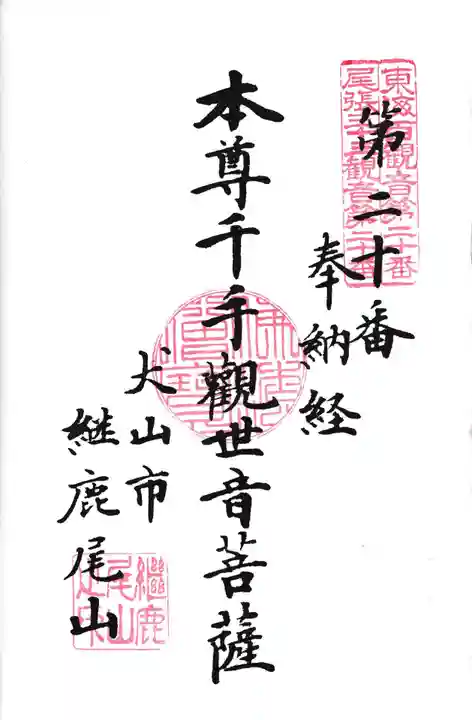 第二十番
東海百観音第二十番
尾張三十三観音第二十番
奉納経
本尊千手觀世音菩薩
犬山市
継鹿尾山
継鹿
尾山